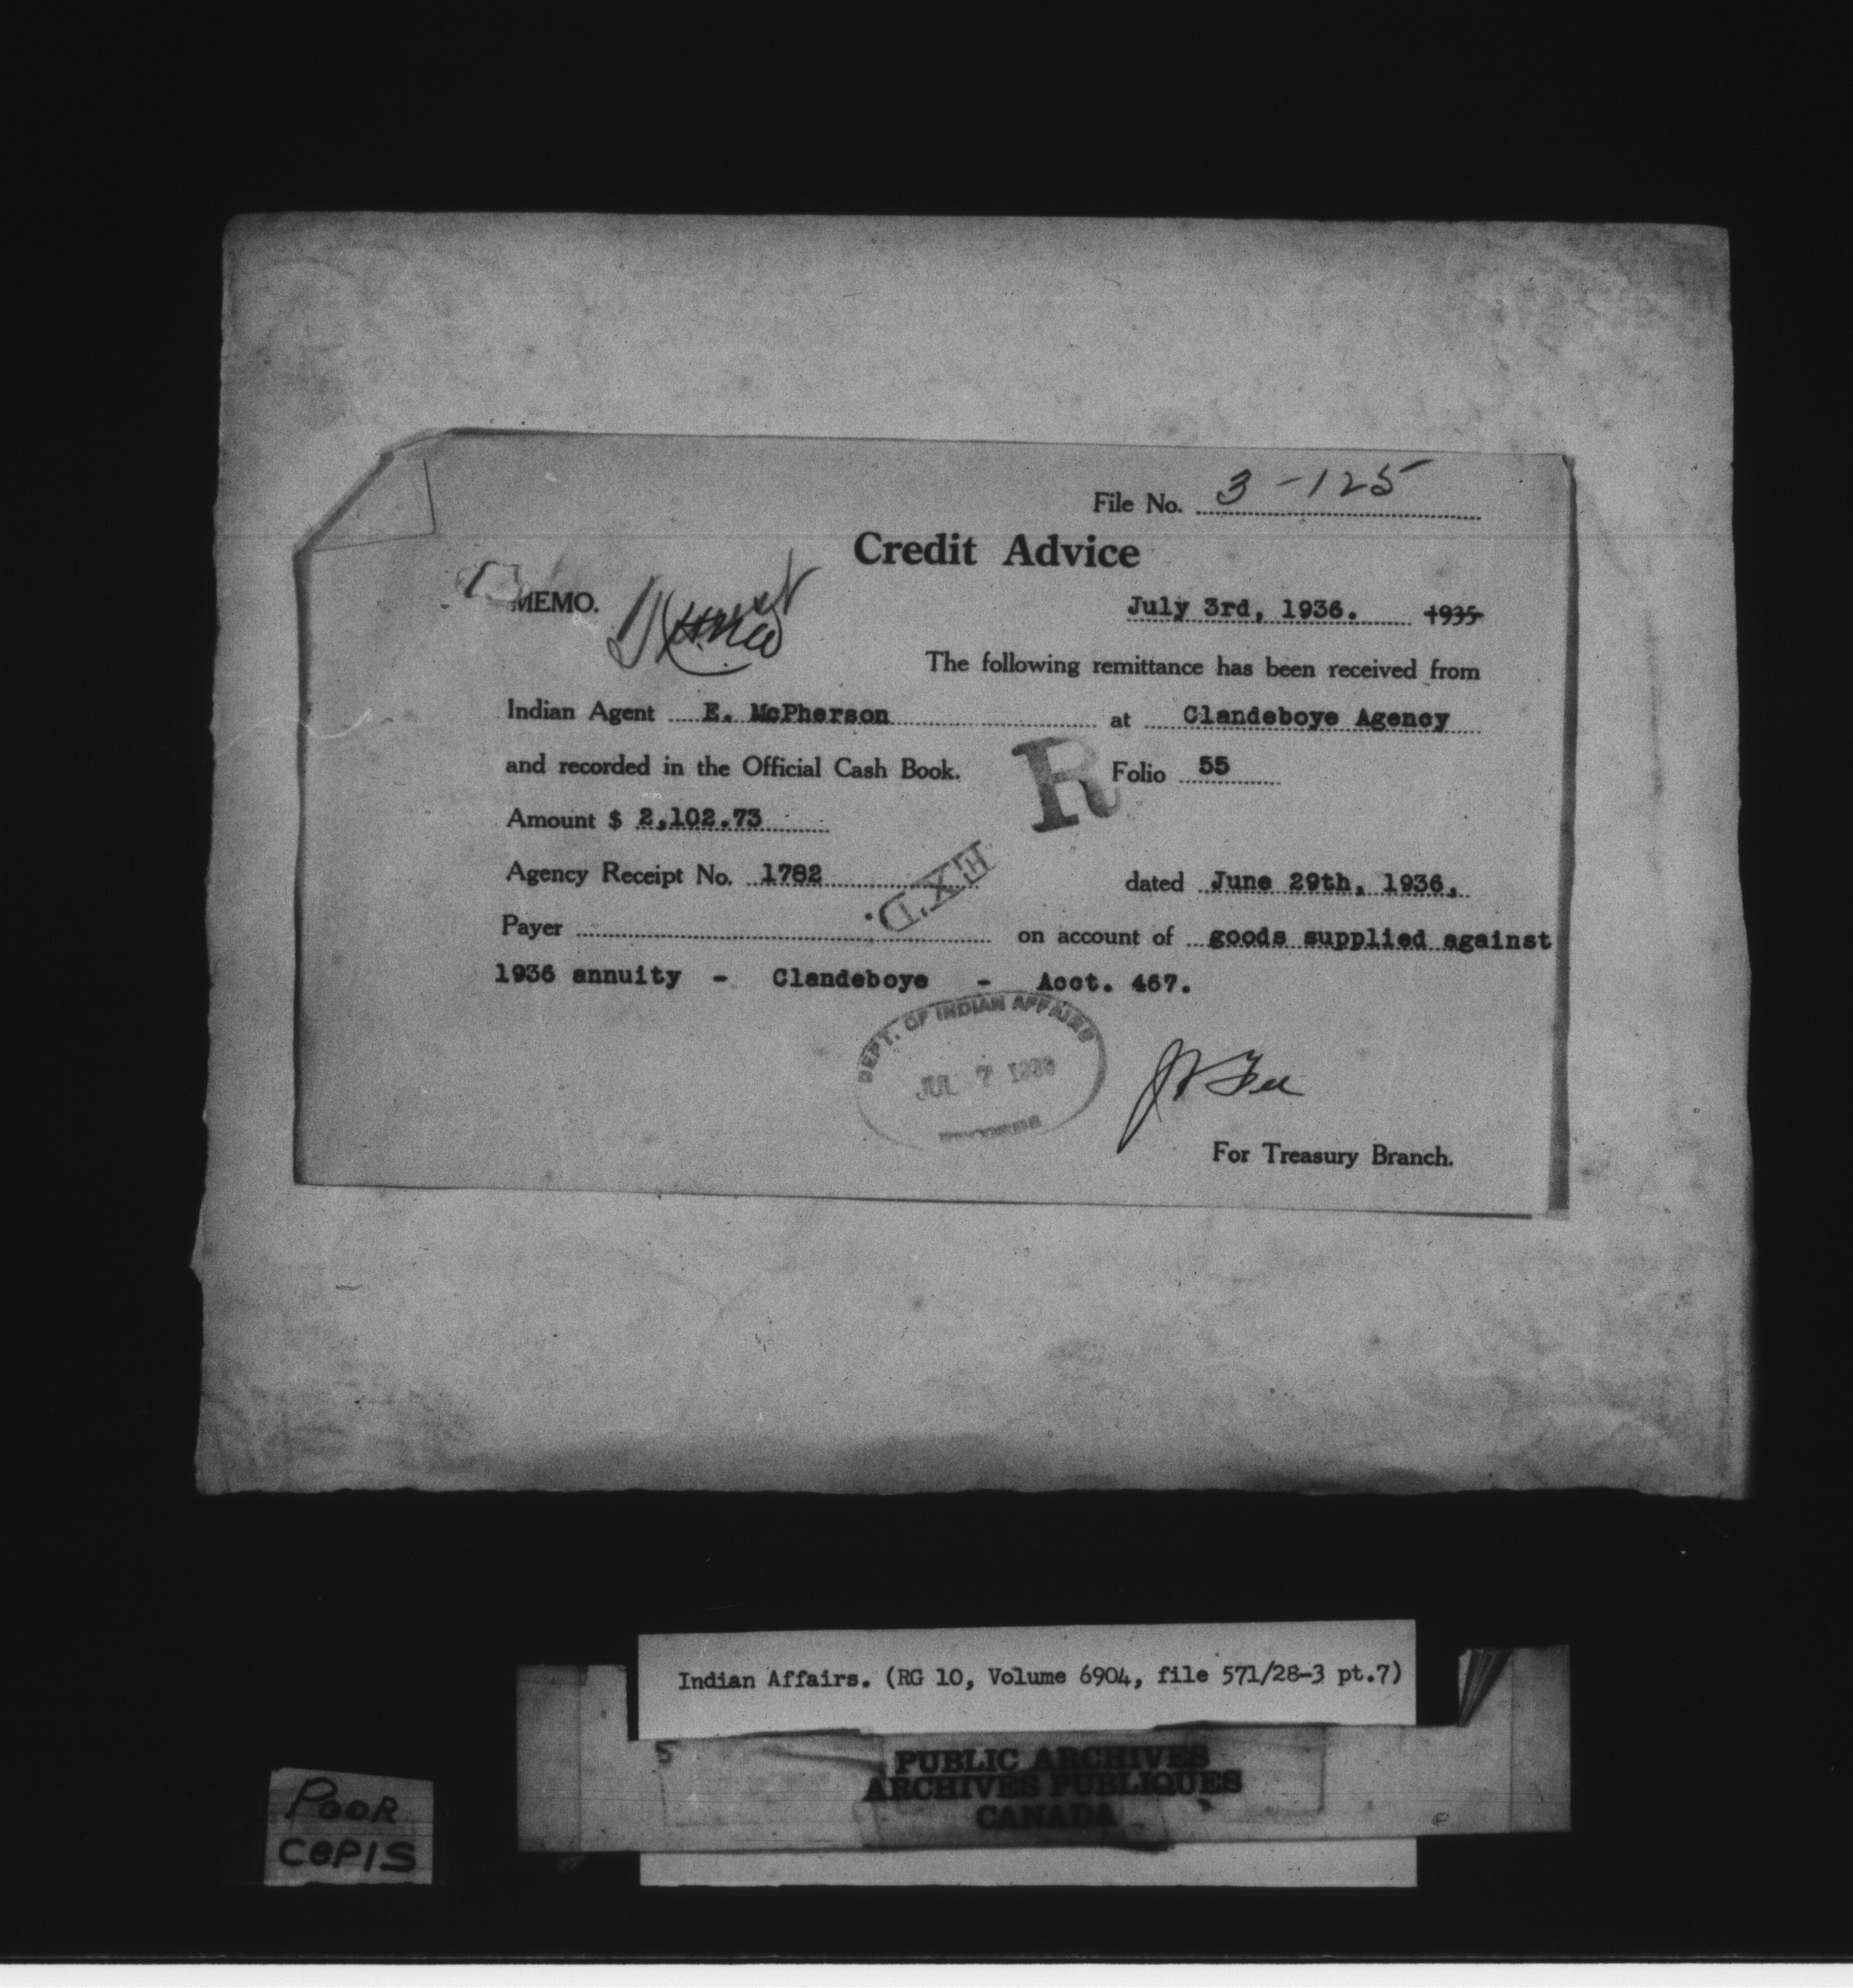 File No. 3-125
Credit Advice
MEMO.
July 3rd, 1936. 1935
The following remittance has been received from
Indian Agent E. McPherson at Clandeboye Agency
and recorded in the Official Cash Book. R Folio 55
Amount $ 2,102.73
Agency Receipt No. 1782 EX'D. dated June 29th, 1936,
Payer on account of goods supplied against
1936 annuity - Clandeboye - Acct. 467.
DEPT. OF INDIAN AFFAIRS
JUL 7 1936
For Treasury Branch.
Indian Affairs. (RG 10, Volume 6904, file 571/28-3 pt.7)
5
PUBLIC ARCHIVES
ARCHIVES PUBLIQUES
CANADA
POOR
COPIS